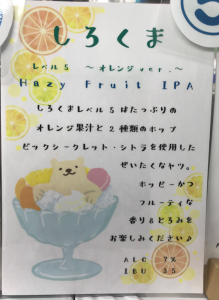 しろくま
レベル5 ～オレンジver.～
Hazy Fruit IPA
しろくまレベル5はたっぷりの
オレンジ果汁と2種類のホップ
ビックシークレット・シトラを使用した
ぜいたくなヤツ。
ホッピーかつ
フルーティな
香り&とろみを
お楽しみください♪
ALC 7%
IBU 35